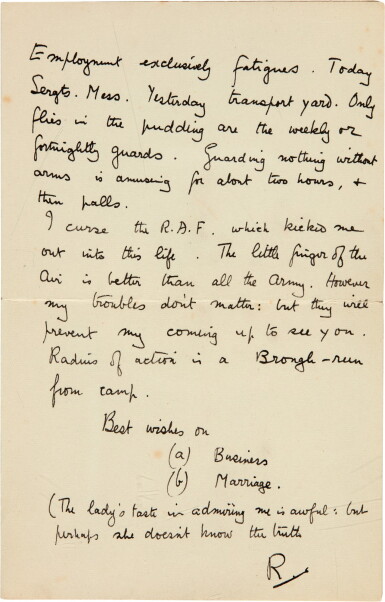 Employment exclusively fatigues. Today
Sergts. Mess. Yesterday transport yard. Only
flies in the pudding are the weekly or
fortnightly guards. Guarding nothing without
arms is amusing for about two hours, +
then palls.
I curse the R.A.F. which kicked me
out into this life. The little finger of the
Air is better than all the Army. However
my troubles don't matter: but they will
prevent my coming up to see you.
Radius of action is a Brough-run
from camp.
Best wishes on
(a) Business
(b) Marriage.
(The lady's taste in admiring me is awful: but
perhaps she doesn't know the truth
R.